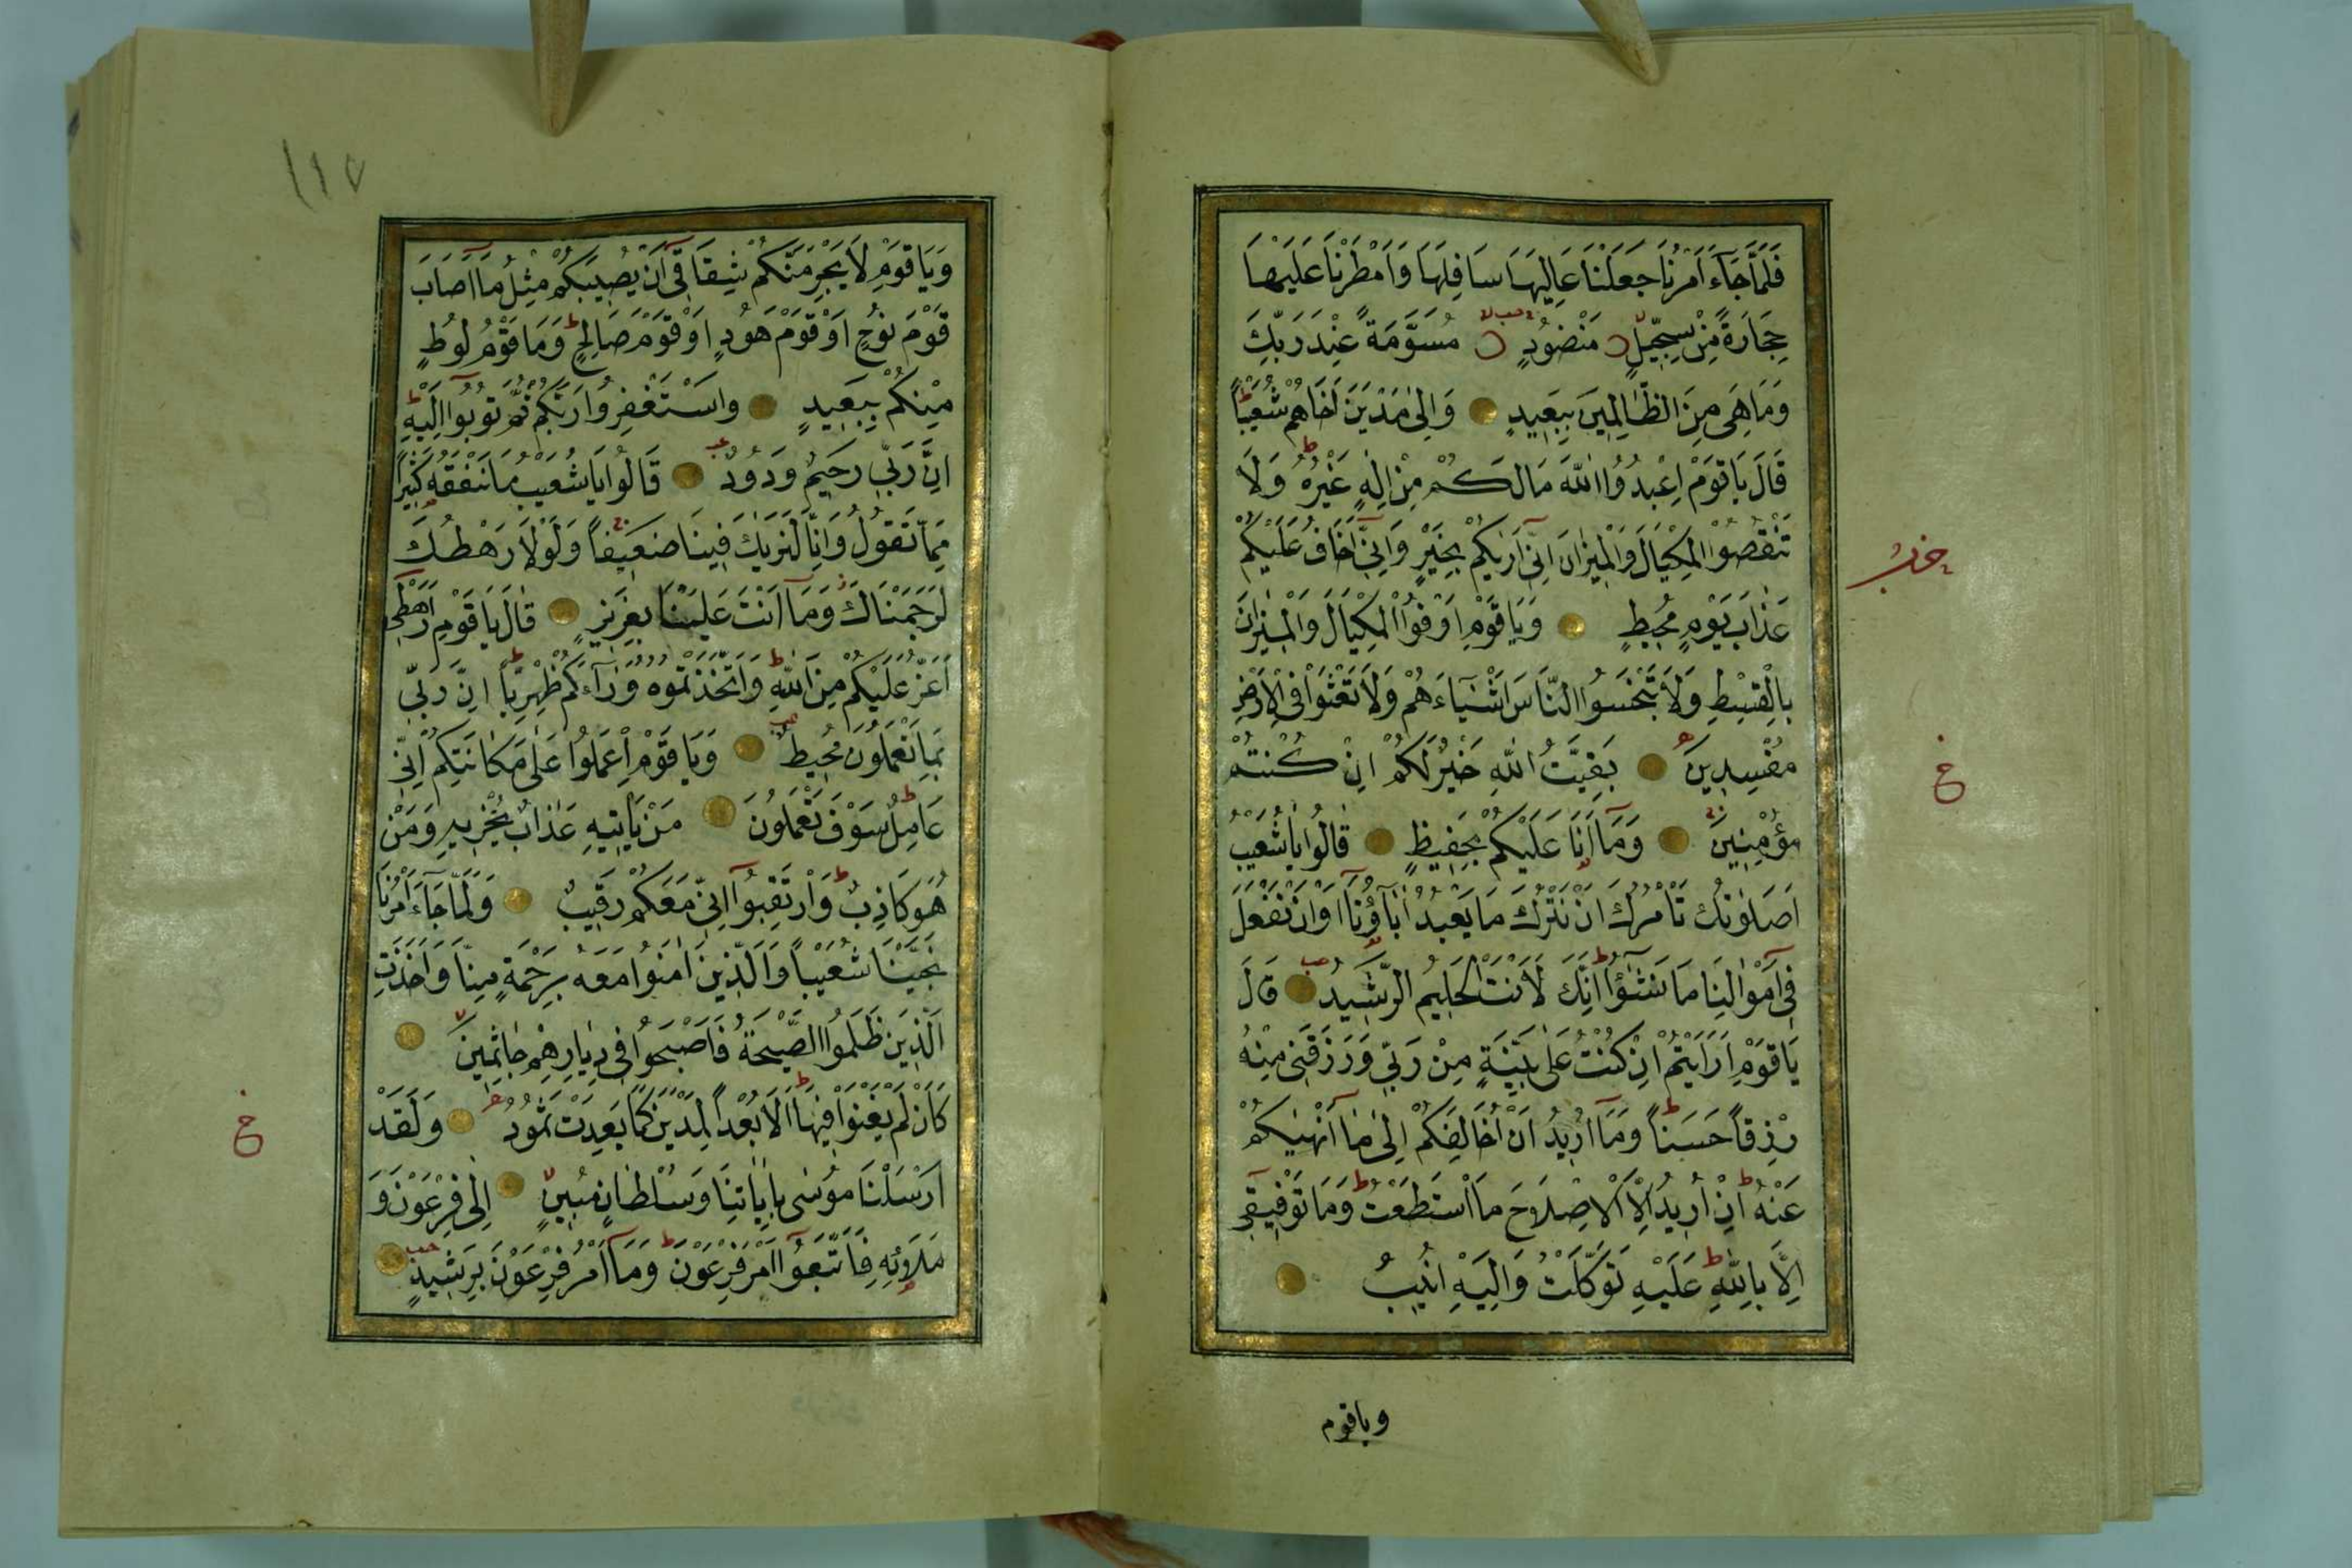 فَلَمَّا جَآءَ اَمْرُنَا جَعَلْنَا عَالِيَهَا سَافِلَهَا وَاَمْطَرْنَا عَلَيْهَا
حِجَارَةً مِنْ سِجِّيلٍ مَنْضُودٍ مُسَوَّمَةً عِنْدَ رَبِّكَ
وَمَا هِىَ مِنَ الظَّالِمِينَ بِبَعِيدٍ وَاِلٰى مَدْيَنَ اَخَاهُمْ شُعَيْبًا
قَالَ يَا قَوْمِ اعْبُدُوا اللّٰهَ مَالَكُمْ مِنْ اِلٰهٍ غَيْرُهُ وَلَا
تَنْقُصُوا الْمِكْيَالَ وَالْمِيزَانَ اِنِّى اَرٰيكُمْ بِخَيْرٍ وَاِنِّى اَخَافُ عَلَيْكُمْ
عَذَابَ يَوْمٍ مُحِيطٍ وَيَا قَوْمِ اَوْفُوا الْمِكْيَالَ وَالْمِيزَانَ
بِالْقِسْطِ وَلَا تَبْخَسُوا النَّاسَ اَشْيَآءَهُمْ وَلَا تَعْثَوْا فِى الْاَرْضِ
مُفْسِدِينَ بَقِيَّتُ اللّٰهِ خَيْرٌ لَكُمْ اِنْ كُنْتُمْ
مُؤْمِنِينَ وَمَآ اَنَا عَلَيْكُمْ بِحَفِيظٍ قَالُوا يَا شُعَيْبُ
اَصَلٰوتُكَ تَاْمُرُكَ اَنْ نَتْرُكَ مَا يَعْبُدُ اٰبَآؤُنَآ اَوْ اَنْ نَفْعَلَ
فِى اَمْوَالِنَا مَا نَشٰٓؤُا اِنَّكَ لَاَنْتَ الْحَلِيمُ الرَّشِيدُ قَالَ
يَا قَوْمِ اَرَاَيْتُمْ اِنْ كُنْتُ عَلٰى بَيِّنَةٍ مِنْ رَبِّى وَرَزَقَنِى مِنْهُ
رِزْقًا حَسَنًا وَمَآ اُرِيدُ اَنْ اُخَالِفَكُمْ اِلٰى مَآ اَنْهٰيكُمْ
عَنْهُ اِنْ اُرِيدُ اِلَّا الْاِصْلَاحَ مَا اسْتَطَعْتُ وَمَا تَوْفِيقِى
اِلَّا بِاللّٰهِ عَلَيْهِ تَوَكَّلْتُ وَاِلَيْهِ اُنِيبُ
وياقوم
١١٧
وَيَا قَوْمِ لَا يَجْرِمَنَّكُمْ شِقَاقِى اَنْ يُصِيبَكُمْ مِثْلُ مَآ اَصَابَ
قَوْمَ نُوحٍ اَوْ قَوْمَ هُودٍ اَوْ قَوْمَ صَالِحٍ وَمَا قَوْمُ لُوطٍ
مِنْكُمْ بِبَعِيدٍ وَاسْتَغْفِرُوا رَبَّكُمْ ثُمَّ تُوبُوا اِلَيْهِ
اِنَّ رَبِّى رَحِيمٌ وَدُودٌ قَالُوا يَا شُعَيْبُ مَا نَفْقَهُ كَثِيرًا
مِمَّا تَقُولُ وَاِنَّا لَنَرٰيكَ فِينَا ضَعِيفًا وَلَوْلَا رَهْطُكَ
لَرَجَمْنَاكَ وَمَآ اَنْتَ عَلَيْنَا بِعَزِيزٍ قَالَ يَا قَوْمِ اَرَهْطِى
اَعَزُّ عَلَيْكُمْ مِنَ اللّٰهِ وَاتَّخَذْتُمُوهُ وَرَآءَكُمْ ظِهْرِيًّا اِنَّ رَبِّى
بِمَا تَعْمَلُونَ مُحِيطٌ وَيَا قَوْمِ اعْمَلُوا عَلٰى مَكَانَتِكُمْ اِنِّى
عَامِلٌ سَوْفَ تَعْلَمُونَ مَنْ يَاْتِيهِ عَذَابٌ يُخْزِيهِ وَمَنْ
هُوَ كَاذِبٌ وَارْتَقِبُوآ اِنِّى مَعَكُمْ رَقِيبٌ وَلَمَّا جَآءَ اَمْرُنَا
نَجَّيْنَا شُعَيْبًا وَالَّذِينَ اٰمَنُوا مَعَهُ بِرَحْمَةٍ مِنَّا وَاَخَذَتِ
الَّذِينَ ظَلَمُوا الصَّيْحَةُ فَاَصْبَحُوا فِى دِيَارِهِمْ جَاثِمِينَ
كَاَنْ لَمْ يَغْنَوْا فِيهَا اَلَا بُعْدًا لِمَدْيَنَ كَمَا بَعِدَتْ ثَمُودُ وَلَقَدْ
اَرْسَلْنَا مُوسٰى بِاٰيَاتِنَا وَسُلْطَانٍ مُبِينٍ اِلٰى فِرْعَوْنَ وَ
مَلَاۨئِهِ فَاتَّبَعُوآ اَمْرَ فِرْعَوْنَ وَمَآ اَمْرُ فِرْعَوْنَ بِرَشِيدٍ